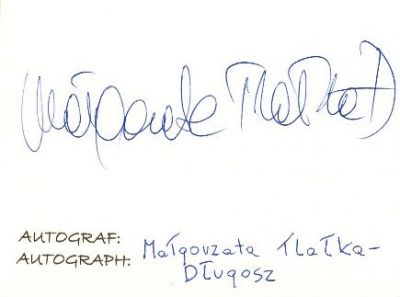 Małgorzata Tlałka D
AUTOGRAF:
AUTOGRAPH: Małgorzata Tlałka-
Długosz